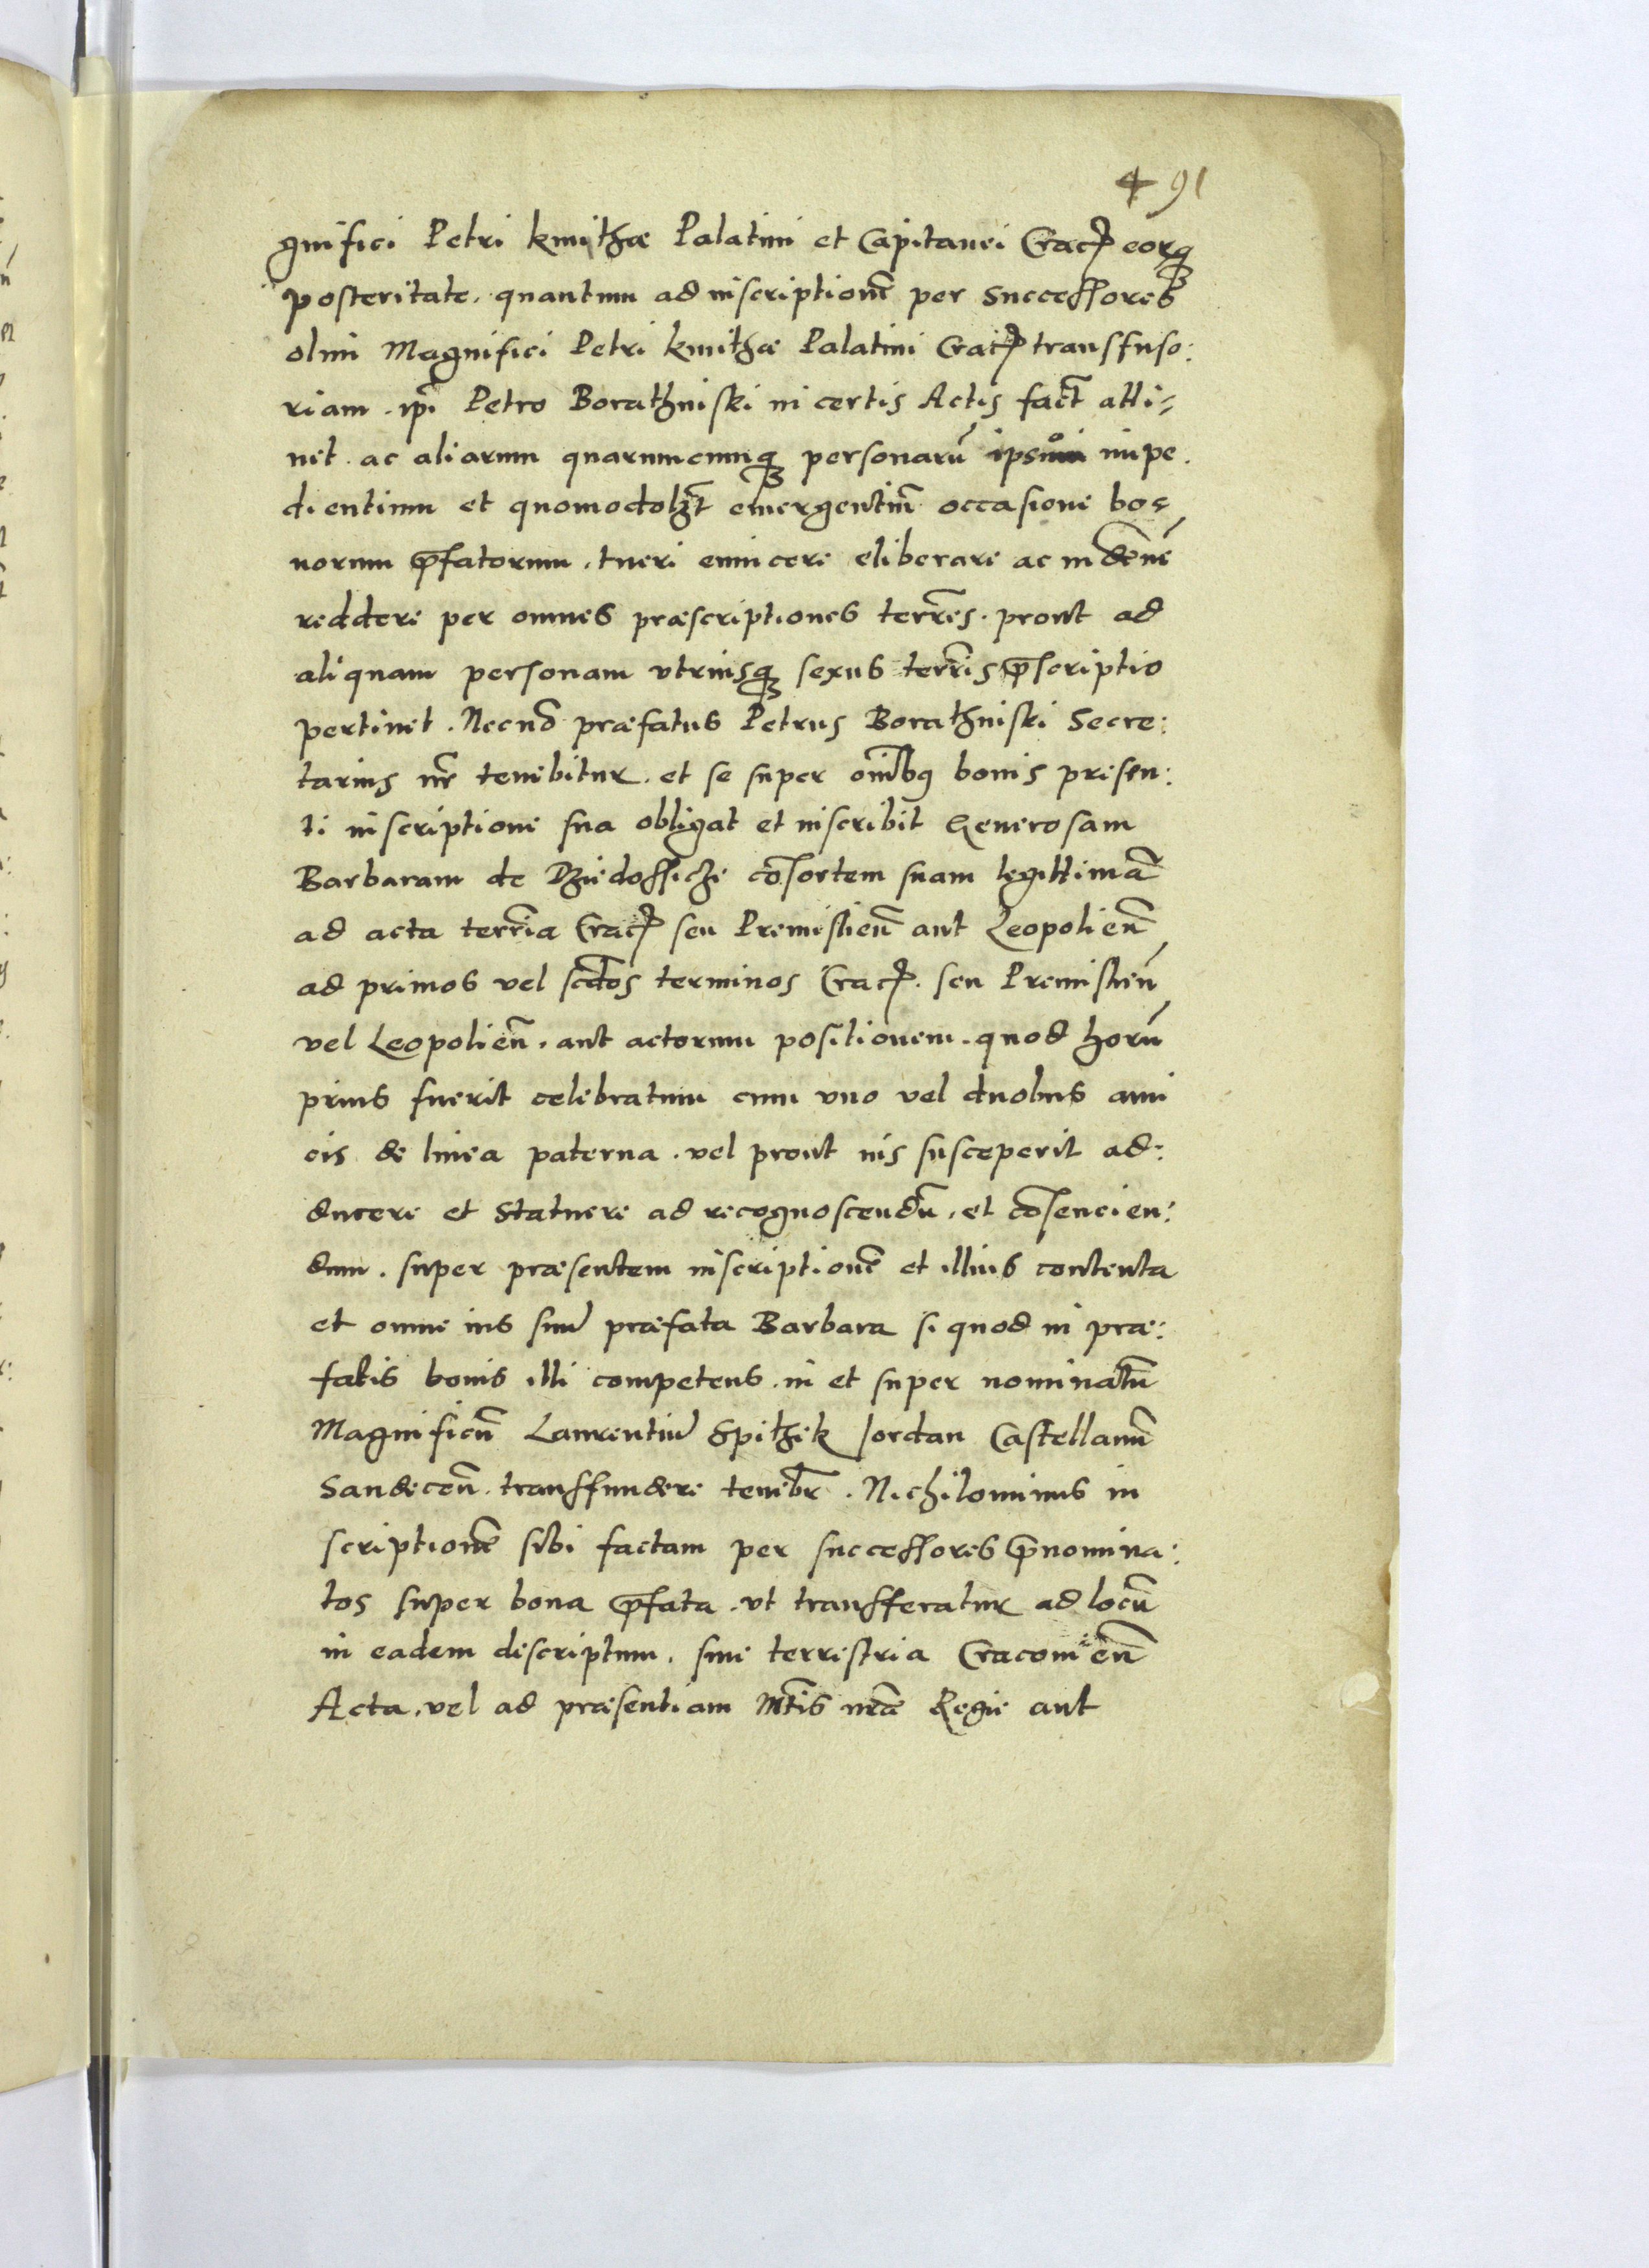 91
gnifici Petri Kmithæ Palatini et Capitanei Crac̃ eorq̃ȝ
posteritate. quantum ad inscriptionē per Successores
olim Magnifici Petri Kmithæ Palatini Crac̃ transfuso:
riam. ip̃i Petro Borathinski in certis Actis fact̃ atti=
net. ac aliarum quarumcunqȝ personarū impe.
dientium et quomodolꝫt emergentiū occasione bo=
norum p̃fatorum. tueri euincere eliberare ac indēnē
reddere per omnes præscriptiones terr̃es. prout ad
aliquam personam vtriusqȝ sexus terr̃is p̃scriptio
pertinet. Necnō præfatus Petrus Borathinski Secre:
tarius nr̃ tenebitur. et se super om̃ibꝰ bonis presen:
ti inscriptione sua obligat et inscribit Generosam
Barbaram de Dziedossicze cōsortem suam legittimā
ad acta terr̃ia Crac̃ seu Premislien̄ aut Leopolien̄
ad primos vel scd̃os terminos Crac̃. seu Premislien̄
vel Leopolien̄. aut actorum positionem. quod horū
prius fuerit celebratum cum vno vel duobus ami
cis de linea paterna. vel prout ius susceperit ad:
ducere et Statuere ad recognoscendū. et cōsencien:
dum. super præsentem inscriptionē et illius contenta
et omne ius suū præfata Barbara si quod in præ:
fatis bonis illi competens. in et super nominatū
Magnificū Laurentiū Spithek Jordan Castellanū
Sandecen̄. transfundere teneb̃r. Nichilominus in
scriptionē sibi factam per successores p̃nomina:
tos super bona p̃fata. vt transferatur ad locū
in eadem descriptum. siue terrestria Cracouien̄
Acta. vel ad præsentiam Mt̃is nr̃æ Regiæ aut